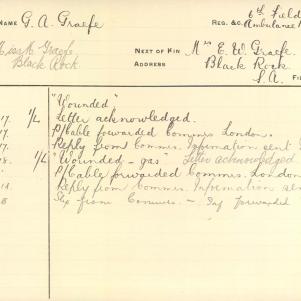 NAME G. A. Graefe
REG. &C. 6th Field
Ambulance
Miss K Graefe
Black Rock
NEXT OF KIN Mrs E. W. Graefe
ADDRESS Black Rock
S.A.
"Wounded"
17. 1/L Letter acknowledged.
17. P/Cable forwarded Commrs London
17. Reply from Commrs. Information sent
18. 1/L "Wounded - gas" Letter acknowledged
P/Cable forwarded Commrs. London
Reply from Commrs. Information
from Commrs - forwarded